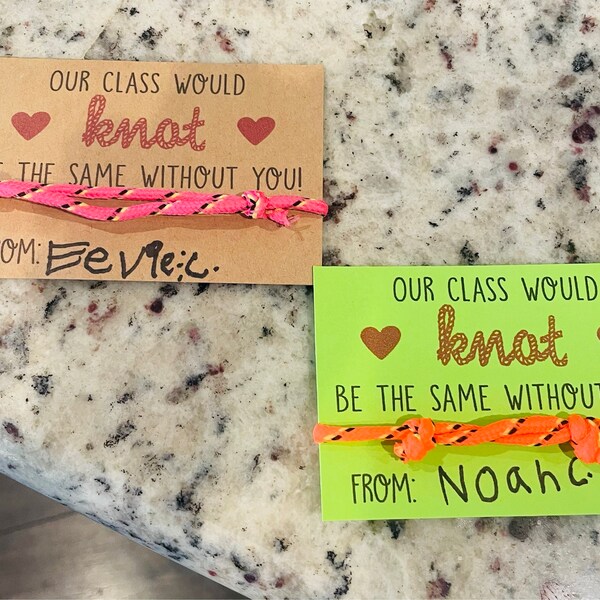 OUR CLASS WOULD
knot
E THE SAME WITHOUT YOU!
OM: Eevie:c.
OUR CLASS WOULD
knot
BE THE SAME WITHOUT
FROM: Noah C.